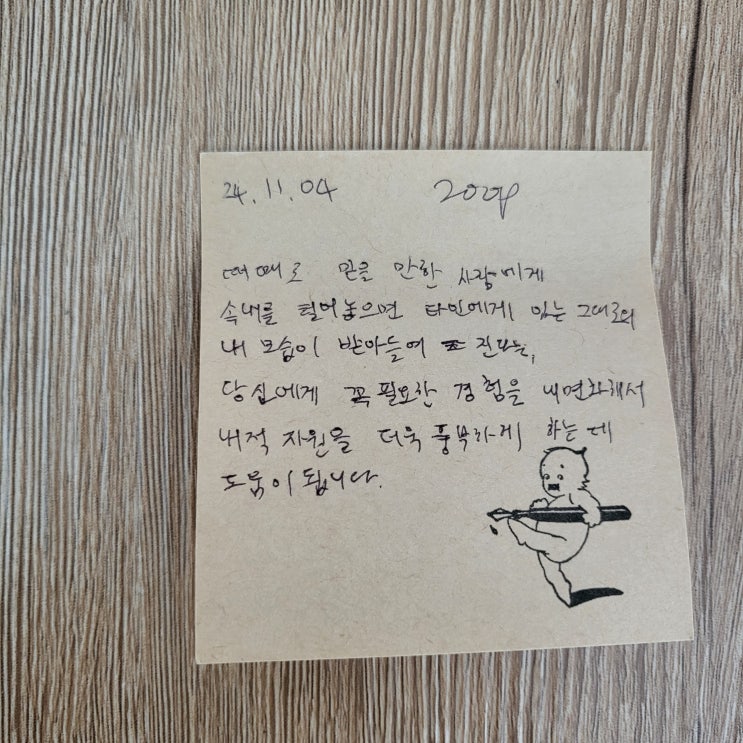 24.11.04 200p
때때로 믿을 만한 사람에게
속내를 털어놓으면 타인에게 있는 그대로의
내 모습이 받아들여 진다는,
당신에게 꼭 필요한 경험을 내면화해서
내적 자원을 더욱 풍부하게 하는 데
도움이 됩니다.